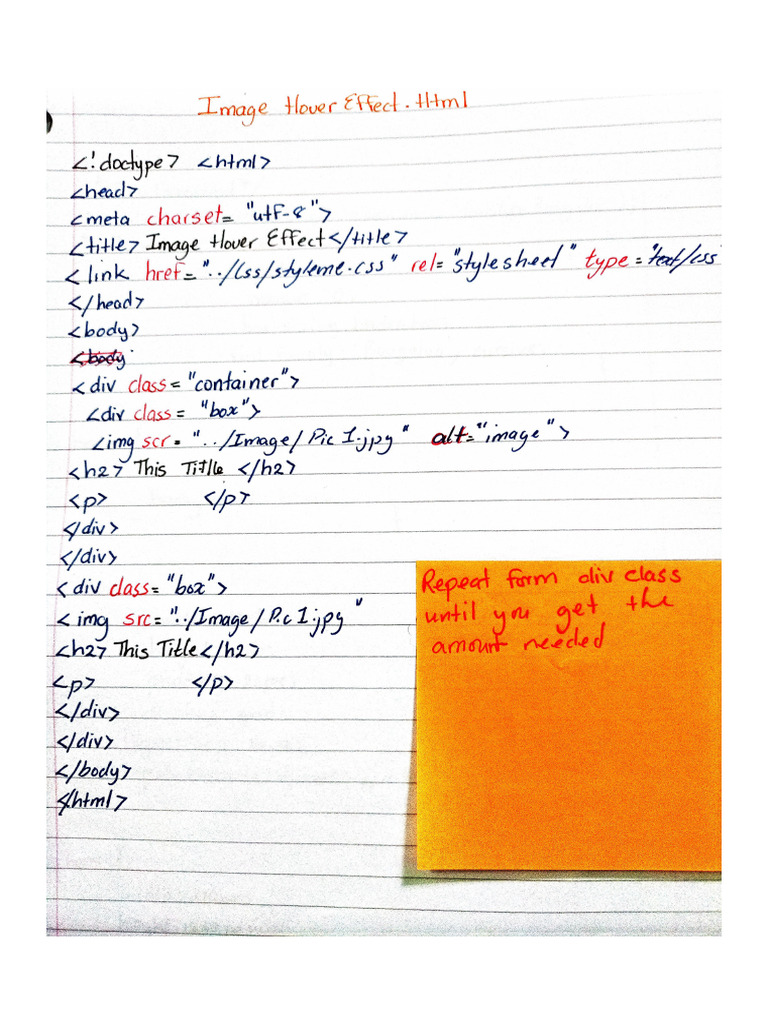 Image Hover Effect.Html
<!doctype> <html>
<head>
<meta charset= "utf-8">
<title> Image Hover Effect</title>
<link href="../Css/styleme.css" rel="stylesheet" type="text/css
</head>
<body>
<body
<div class="container">
<div class= "box">
<img scr= "../Image/Pic 1.jpg" alt="image">
<h2> This Title </h2>
<p> </p>
</div>
</div>
<div class="box">
<img src="../Image/Pic 1.jpg"
<h2> This Title</h2>
<p> </p>
</div>
</div>
</body>
</html>
Repeat form div class
until you get the
amount needed